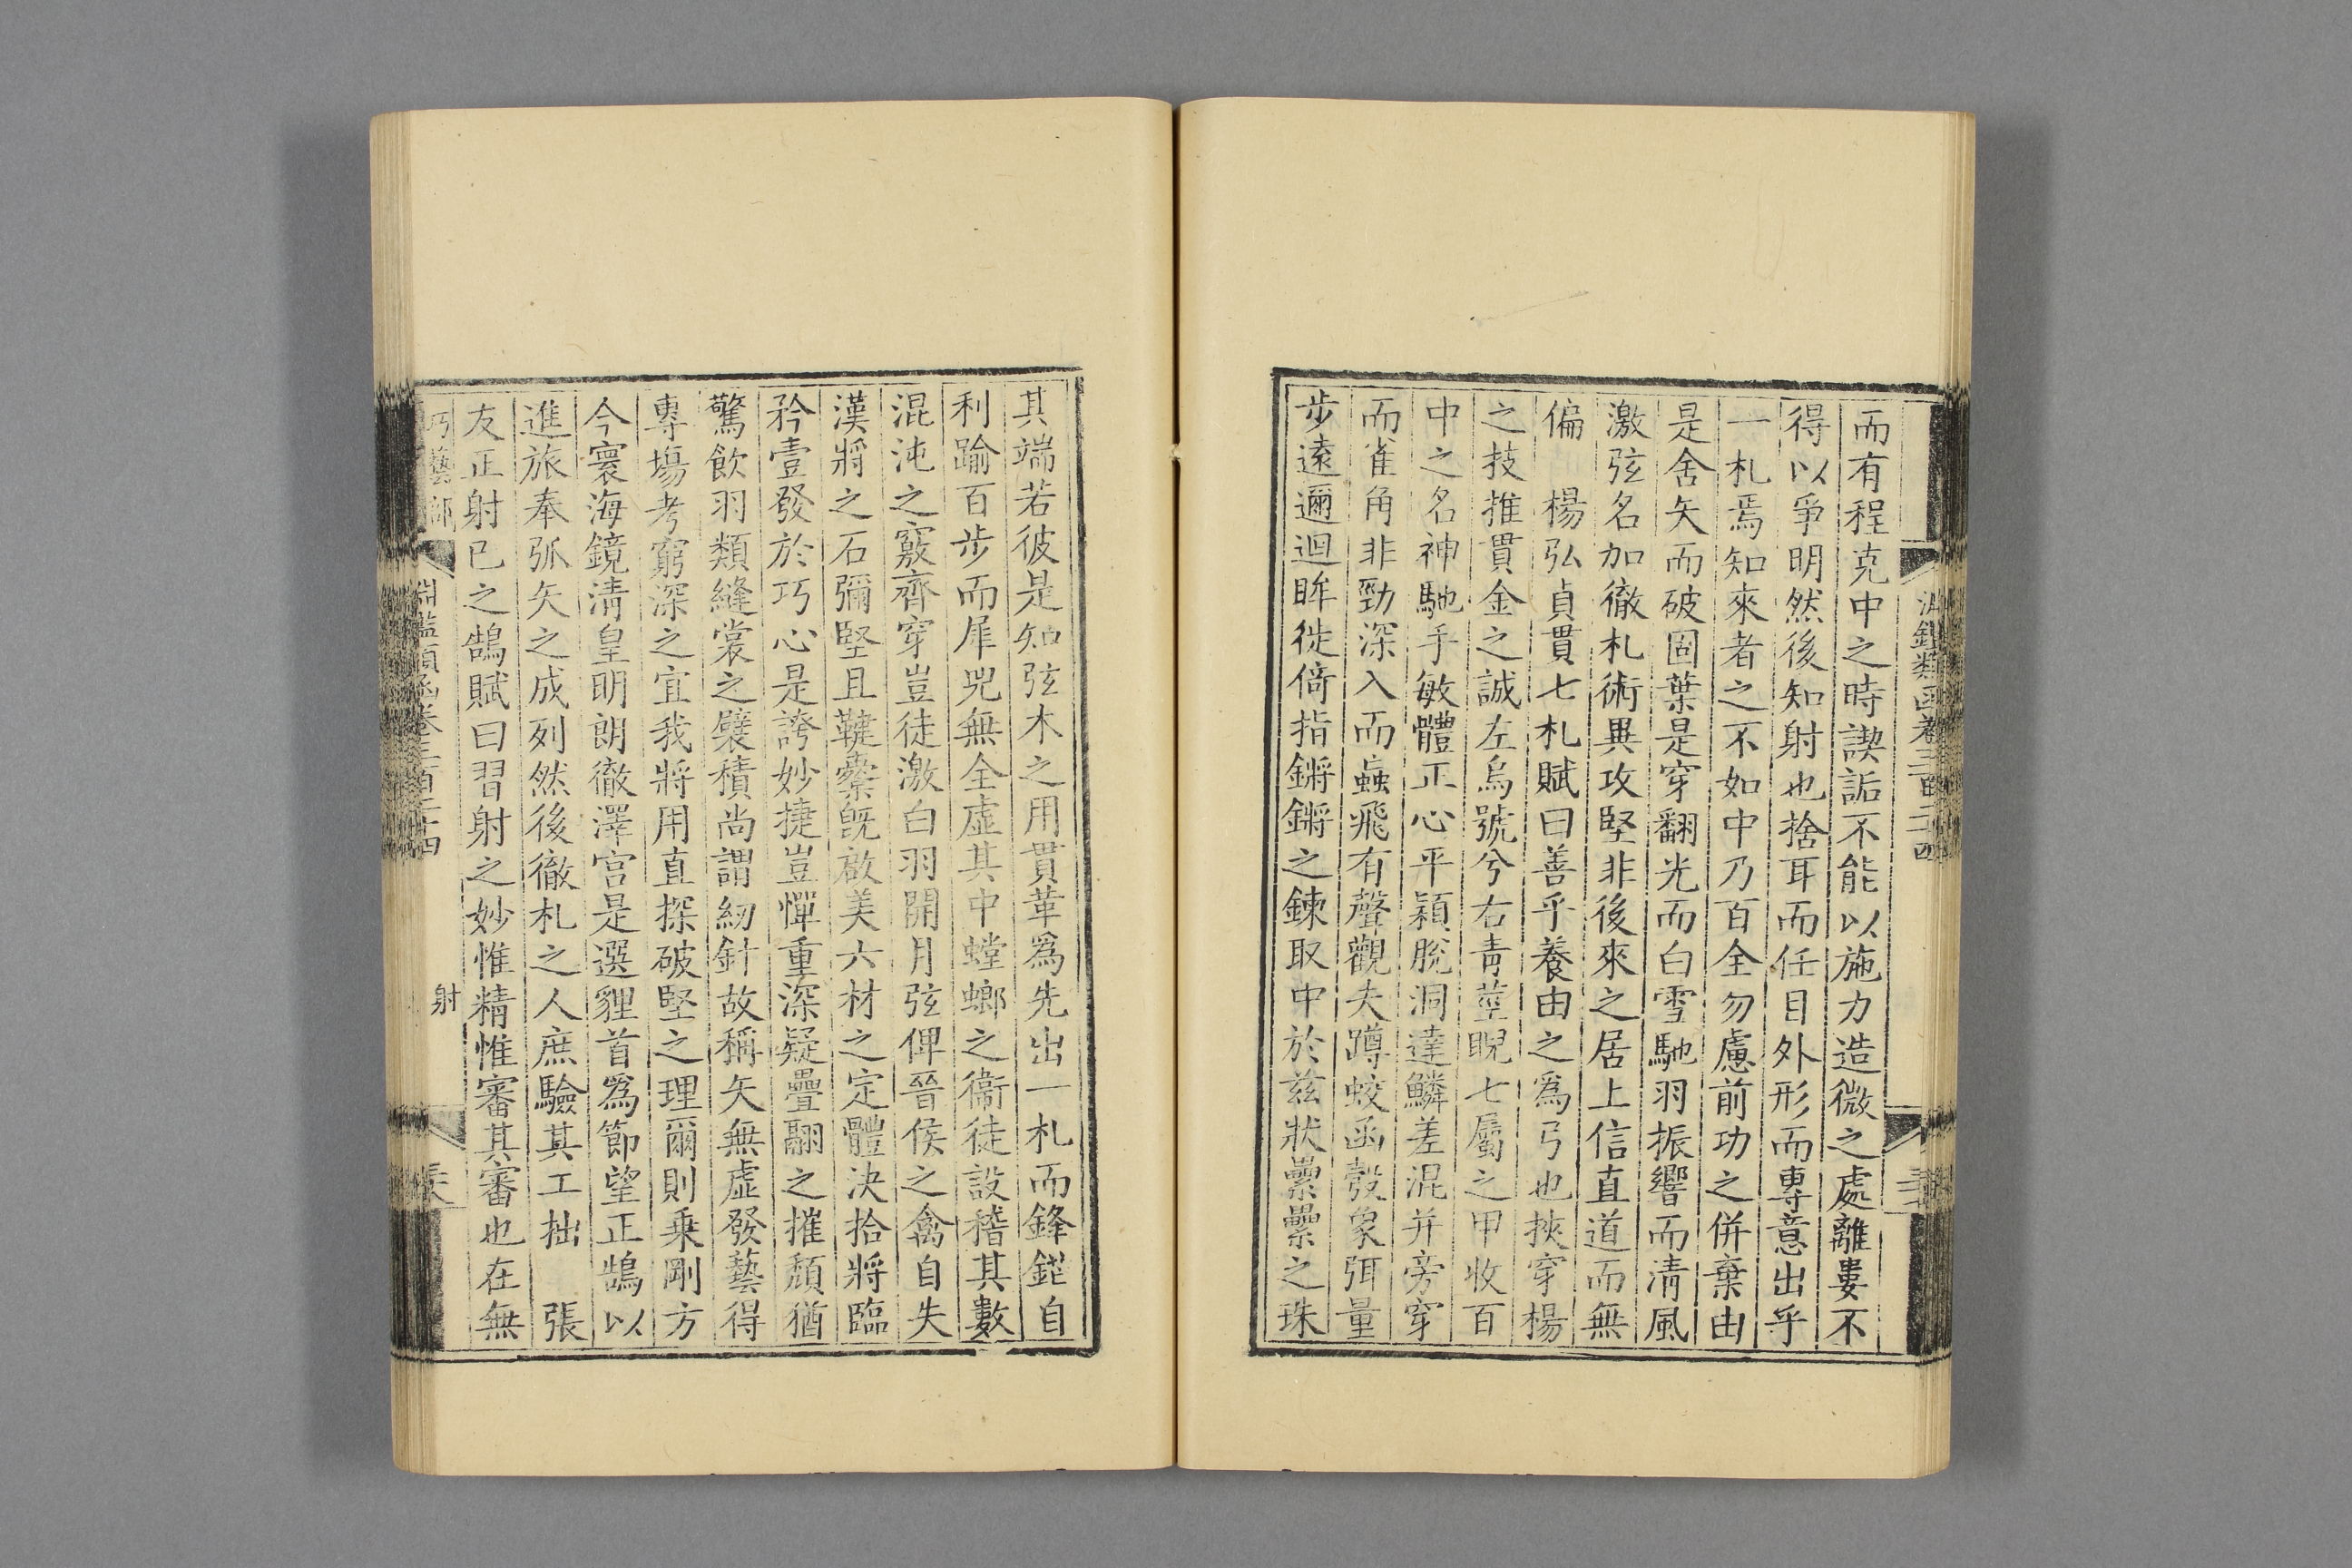 淵鑑類函卷三百二十四
而有程克中之時謑詬不能以施力造微之處離婁不
得以爭明然後知射也捨耳而任目外形而專意出乎
一札焉知來者之不如中乃百全勿慮前功之併棄由
是舍矢而破固葉是穿翻光而白雪馳羽振響而清風
激弦名加徹札術異攻堅非後來之居上信直道而無
偏　楊弘貞貫七札賦曰善乎養由之為弓也挾穿楊
之技推貫金之誠左烏號兮右青莖睨七屬之甲收百
中之名神馳手敏體正心平穎脫洞達鱗差混并旁穿
而雀角非勁深入而蝱飛有聲觀夫蹲蛟函彀象弭量
步遠邇迴眸徙倚指鏘鏘之鍊取中於茲狀纍纍之珠
其端若彼是知弦木之用貫革爲先出一札而鋒鋩自
利踰百步而犀兕無全虛其中螳螂之衞徒設稽其數
混沌之竅齊穿豈徒激白羽開月弦俾晉侯之禽自失
漢將之石彌堅且鞬櫜旣啟美六材之定體決拾將臨
矜壹發於巧心是誇妙捷豈憚重深疑疊翮之摧頹猶
驚飲羽類縫裳之襞積尚謂紉針故稱矢無虛發藝得
專場考窮深之宜我將用直探破堅之理爾則乘剛方
今寰海鏡清皇明朗徹澤宫是選貍首爲節望正鵠以
進旅奉弧矢之成列然後徹札之人庶驗其工拙　張
友正射已之鵠賦曰習射之妙惟精惟審其審也在無
巧藝部　淵鑑類函卷三百二十四　射